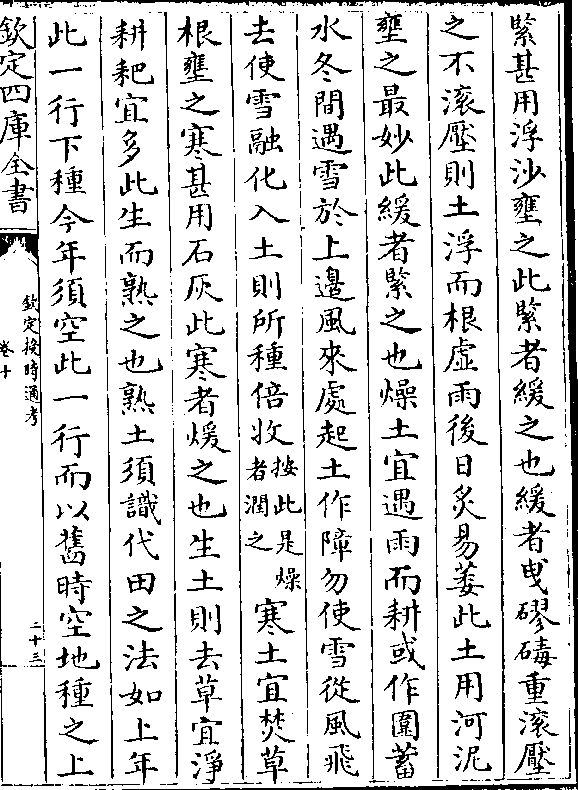 緊甚用浮沙壅之此緊者緩之也緩者曳磟碡重滚壓
之不滚壓則土浮而根虛雨後日炙易萎此土用河泥
壅之最妙此緩者緊之也燥土宜遇雨而耕或作圍蓄
水冬間遇雪於上邉風來處起土作障勿使雪從風飛
去使雪融化入土則所種倍收按此是燥者潤之寒土宜焚草
根壅之寒甚用石灰此寒者煖之也生土則去草宜淨
耕耙宜多此生而熟之也熟土須識代田之法如上年
此一行下種今年須空此一行而以舊時空地種之上
欽定四庫全書
欽定授時通考
卷十
二十三